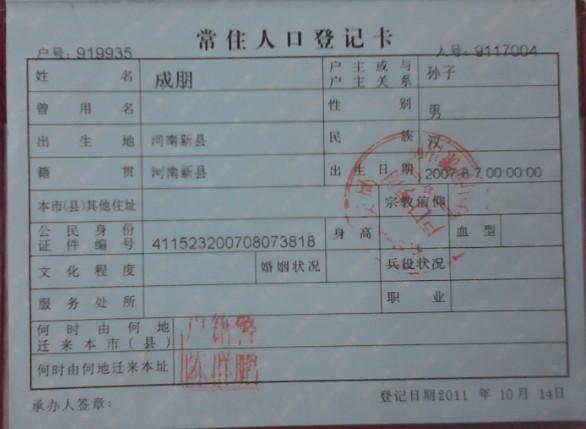 常住人口登记卡
户号: 919935 人号: 9117004
姓名 成朋 户主或与户主关系 孙子
曾用名 性别 男
出生地 河南新县 民族 汉
籍贯 河南新县 出生日期 2007-8-7 00:00:00
本市(县)其他住址 宗教信仰
公民身份证件编号 411523200708073818 身高 血型
文化程度 婚姻状况 兵役状况
服务处所 职业
何时由何地迁来本市(县)
何时由何地迁来本址
承办人签章: 登记日期2011 年 10 月 14日